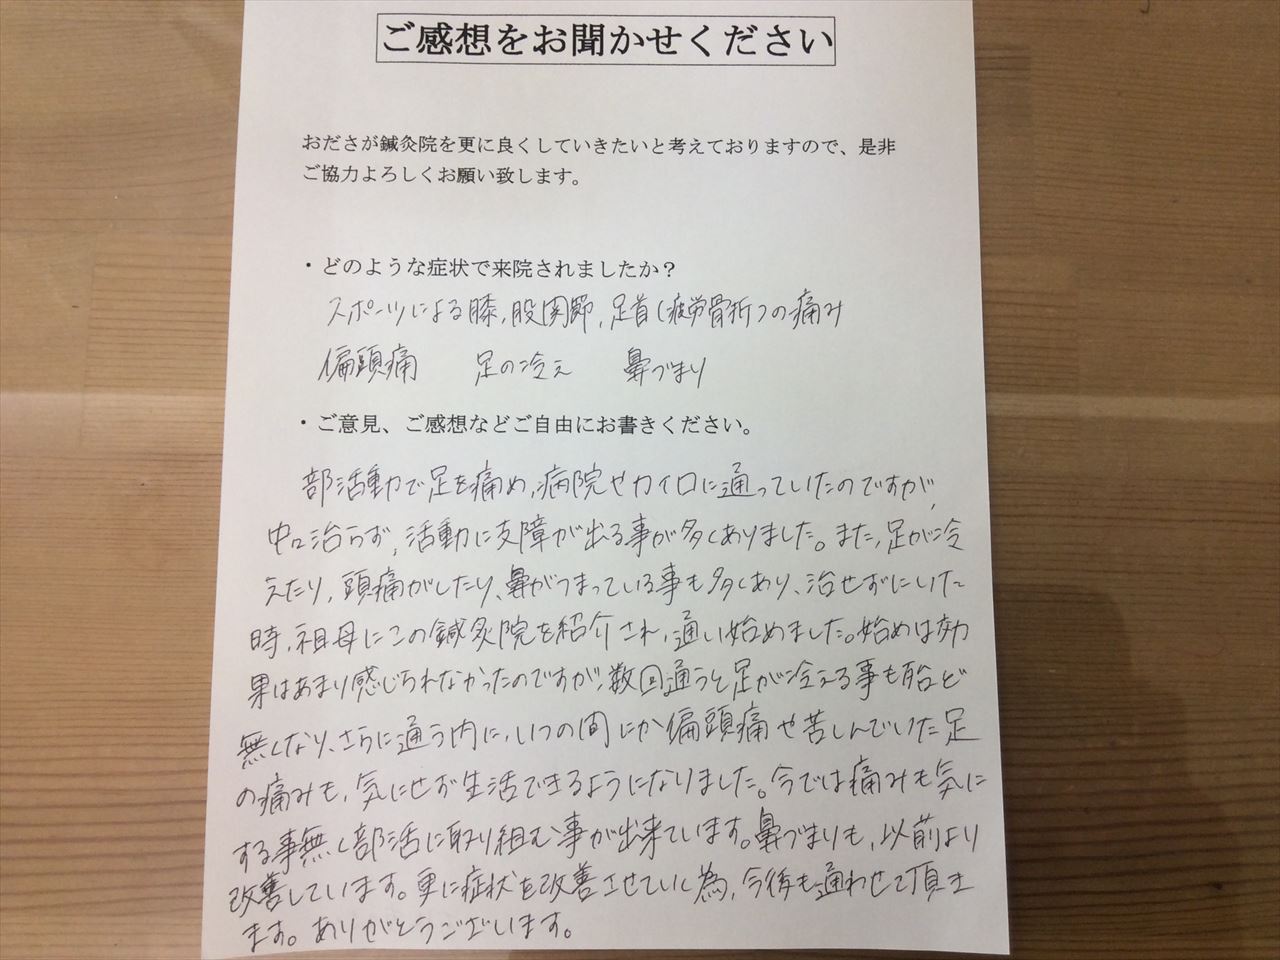 ご感想をお聞かせください
おださが鍼灸院を更に良くしていきたいと考えておりますので、是非
ご協力よろしくお願い致します。
・どのような症状で来院されましたか？
スポーツによる膝,股関節,足首(疲労骨折)の痛み
偏頭痛 足の冷え 鼻づまり
・ご意見、ご感想などご自由にお書きください。
部活動で足を痛め,病院やカイロに通っていたのですが,
中々治らず,活動に支障が出る事が多くありました。また,足が冷
えたり,頭痛がしたり,鼻がつまっている事も多くあり、治せずにいた
時,祖母にこの鍼灸院を紹介され,通い始めました。始めは効
果はあまり感じられなかったのですが,数回通うと足が冷える事も殆ど
無くなり、さらに通う内に,いつの間にか偏頭痛や苦しんでいた足
の痛みも,気にせず生活できるようになりました。今では痛みも気に
する事無く部活に取り組む事が出来ています。鼻づまりも,以前より
改善しています。更に症状を改善させていく為,今後も通わせて頂き
ます。ありがとうございます。